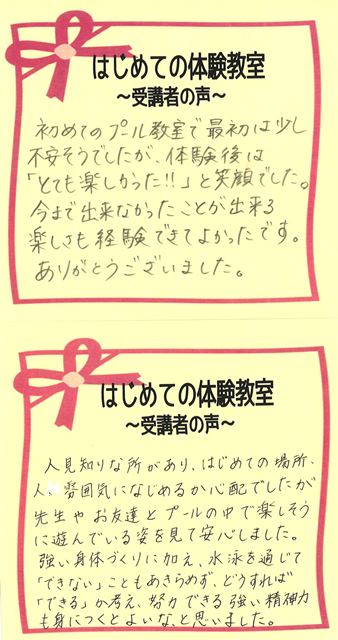 はじめての体験教室
～受講者の声～
初めてのプール教室で最初は少し
不安そうでしたが、体験後は
「とても楽しかった!!」と笑顔でした。
今まで出来なかったことが出来る
楽しさも経験できてよかったです。
ありがとうございました。
はじめての体験教室
～受講者の声～
人見知りな所があり、はじめての場所、
人、雰囲気になじめるか心配でしたが
先生やお友達とプールの中で楽しそう
に遊んでいる姿を見て安心しました。
強い身体づくりに加え、水泳を通じて
「できない」こともあきらめず、どうすれば
「できる」か考え、努力できる強い精神力
も身につくとよいな、と思いました。